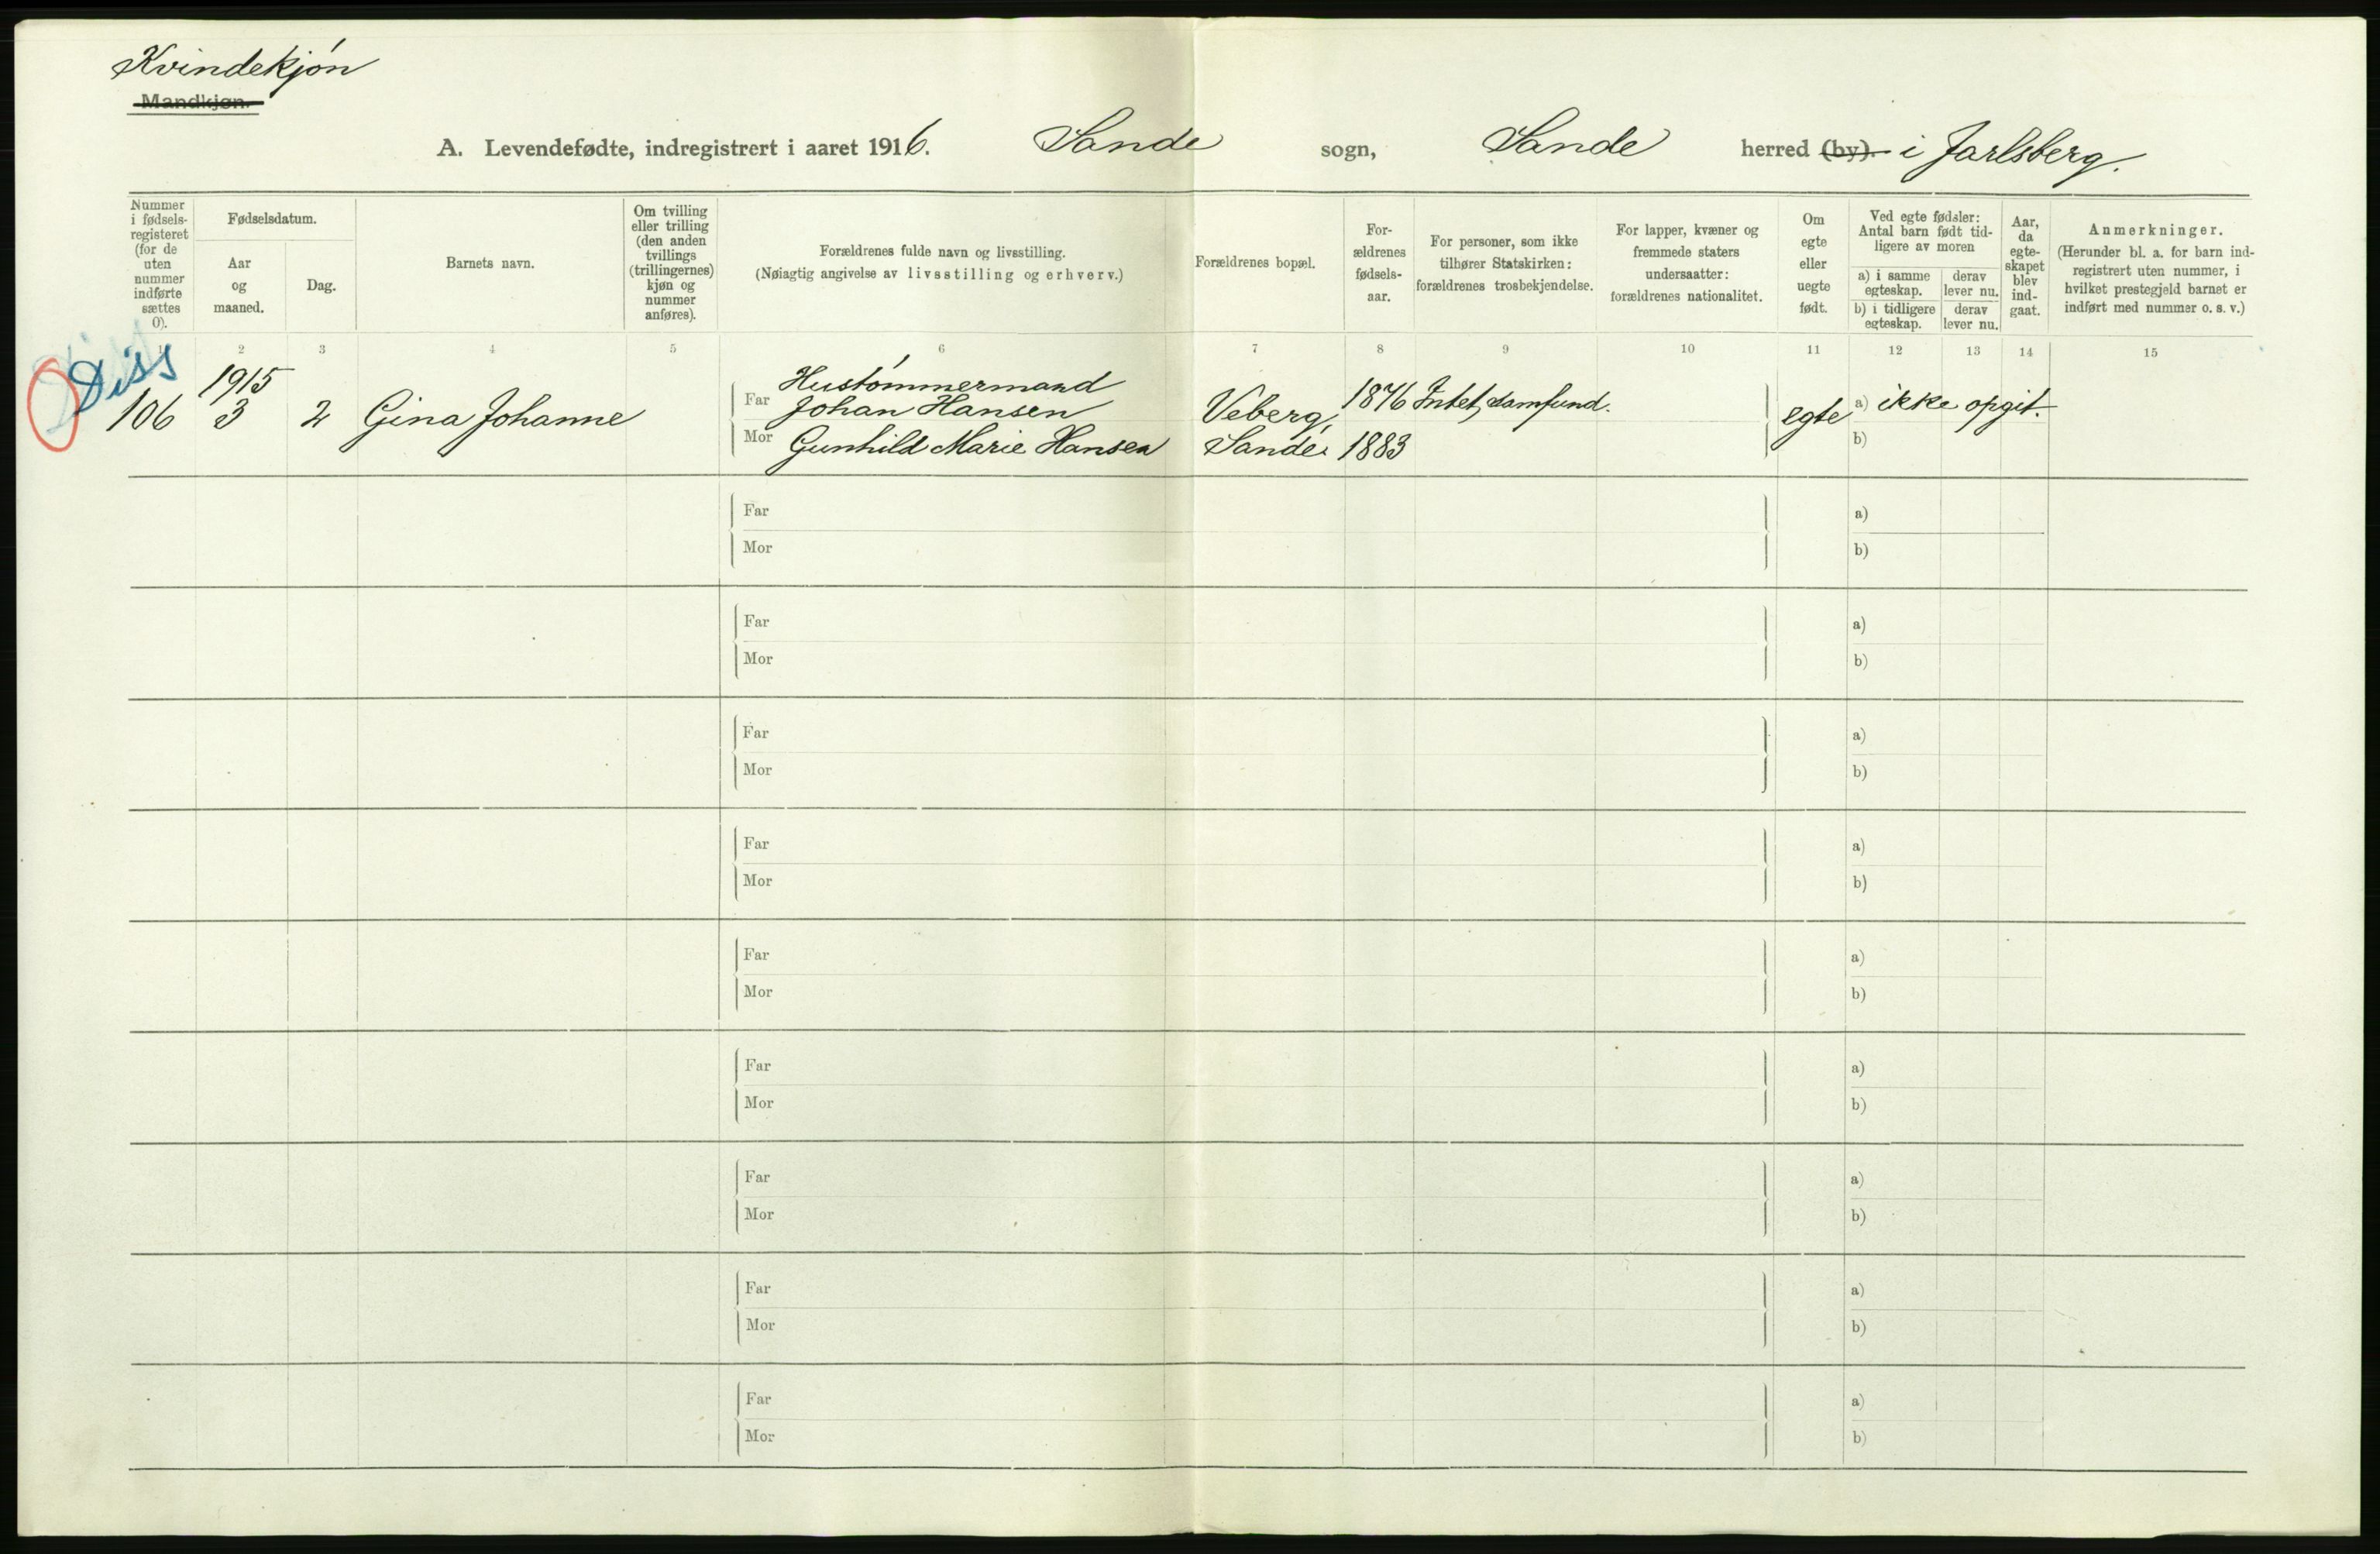 Kvindekjøn
Mandkjøn.
A. Levendefødte, indregistrert i aaret 1916. Sande sogn, Sande herred (by). i Jarlsberg.
Nummer i fødsels-registeret (for de uten nummer indførte sættes 0).
Fødselsdatum.
Aar og maaned.
Dag.
Barnets navn.
Om tvilling eller trilling (den anden tvillings (trillingernes) kjøn og nummer anføres).
Forældrenes fulde navn og livsstilling.
(Nøiagtig angivelse av livsstilling og erhverv.)
Forældrenes bopæl.
For-ældrenes fødsels-aar.
For personer, som ikke tilhører Statskirken: forældrenes trosbekjendelse.
For lapper, kvæner og fremmede staters undersaatter: forældrenes nationalitet.
Om egte eller uegte født.
Ved egte fødsler: Antal barn født tid-ligere av moren
a) i samme egteskap.
derav lever nu.
b) i tidligere egteskap.
derav lever nu.
Aar, da egte-skapet blev ind-gaat.
Anmerkninger.
(Herunder bl. a. for barn ind-registrert uten nummer, i hvilket prestegjeld barnet er indført med nummer o. s. v.)
1 2 3 4 5 6 7 8 9 10 11 12 13 14 15
Diss
1915
106 3 2 Gina Johanne
Hustømmermand
Far Johan Hansen
Mor Gunhild Marie Hansen
Veberg,
Sande.
1876 Intet samfund.
1883
egte
a) ikke opgit.
b)
Far a)
Mor b)
Far a)
Mor b)
Far a)
Mor b)
Far a)
Mor b)
Far a)
Mor b)
Far a)
Mor b)
Far a)
Mor b)
Far a)
Mor b)
Far a)
Mor b)